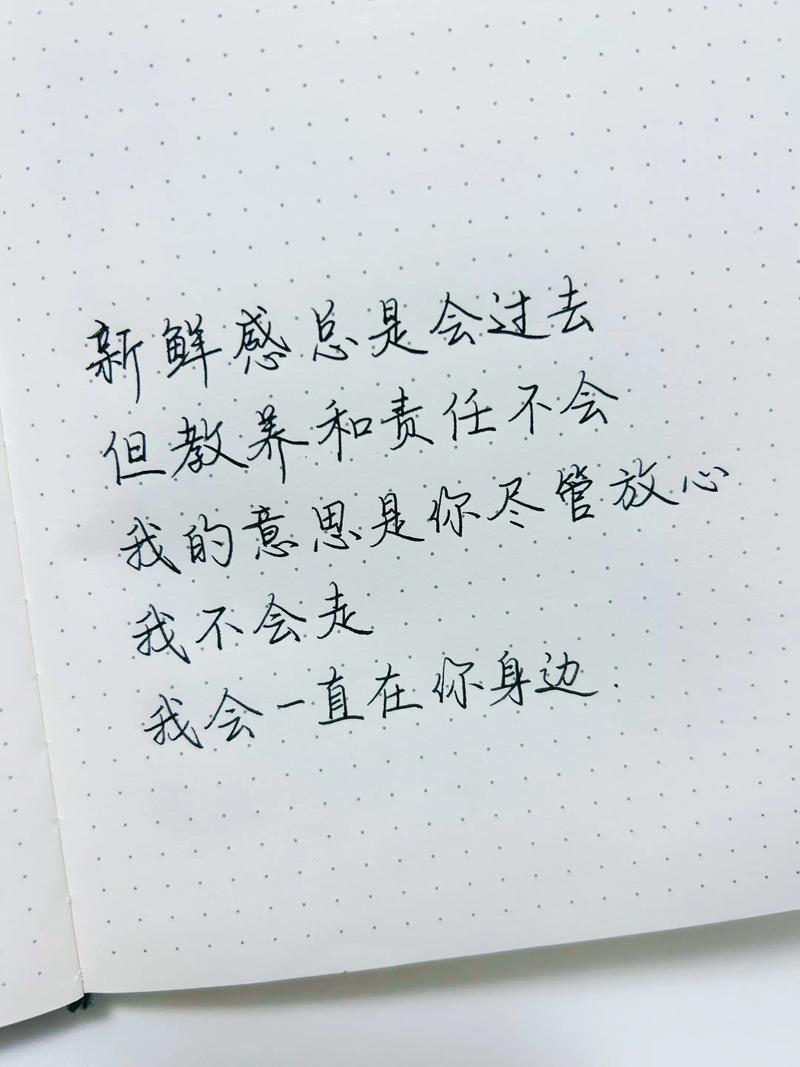 新鲜感总是会过去
但教养和责任不会
我的意思是你尽管放心
我不会走
我会一直在你身边.